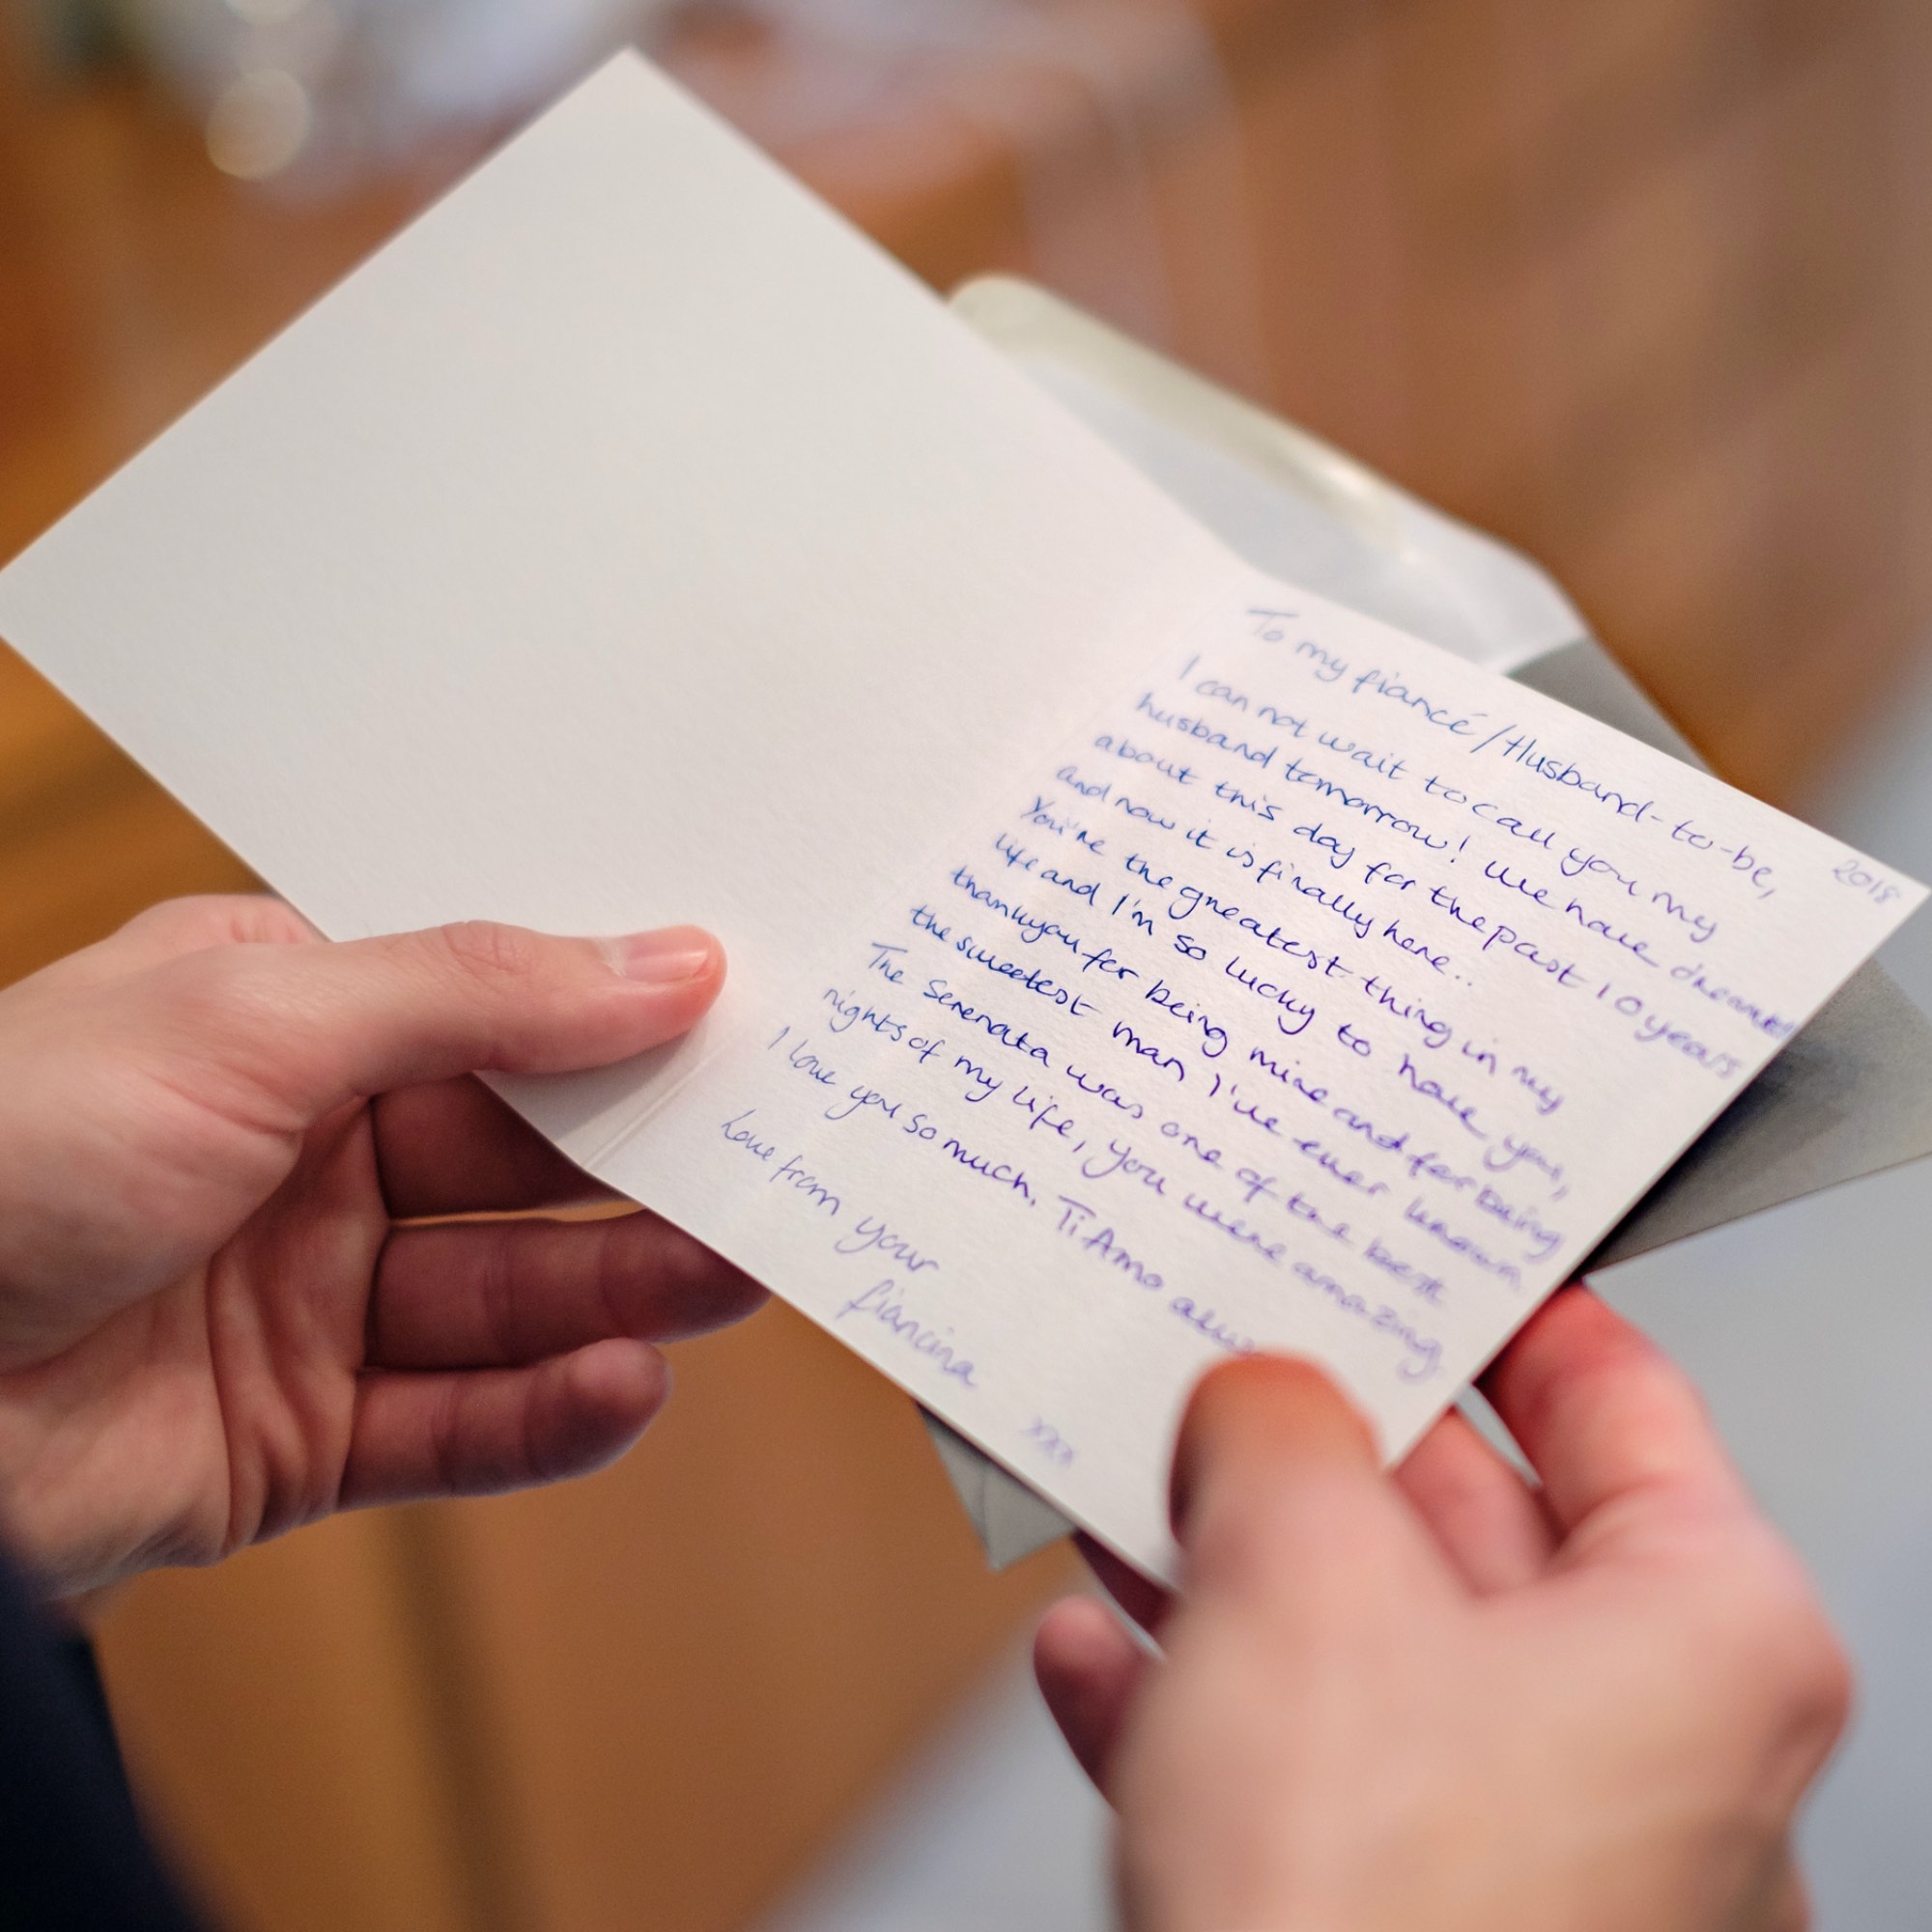 2018
To my fiancé/Husband-to-be,
I can not wait to call you my
husband tomorrow! We have dreamed
about this day for the past 10 years
and now it is finally here..
You're the greatest thing in my
life and I'm so lucky to have you,
thankyou for being mine and for being
the sweetest man I've ever known
The Serenata was one of the best
nights of my life, you were amazing.
I love you so much. Ti Amo
Love from your
fiancina
xxx